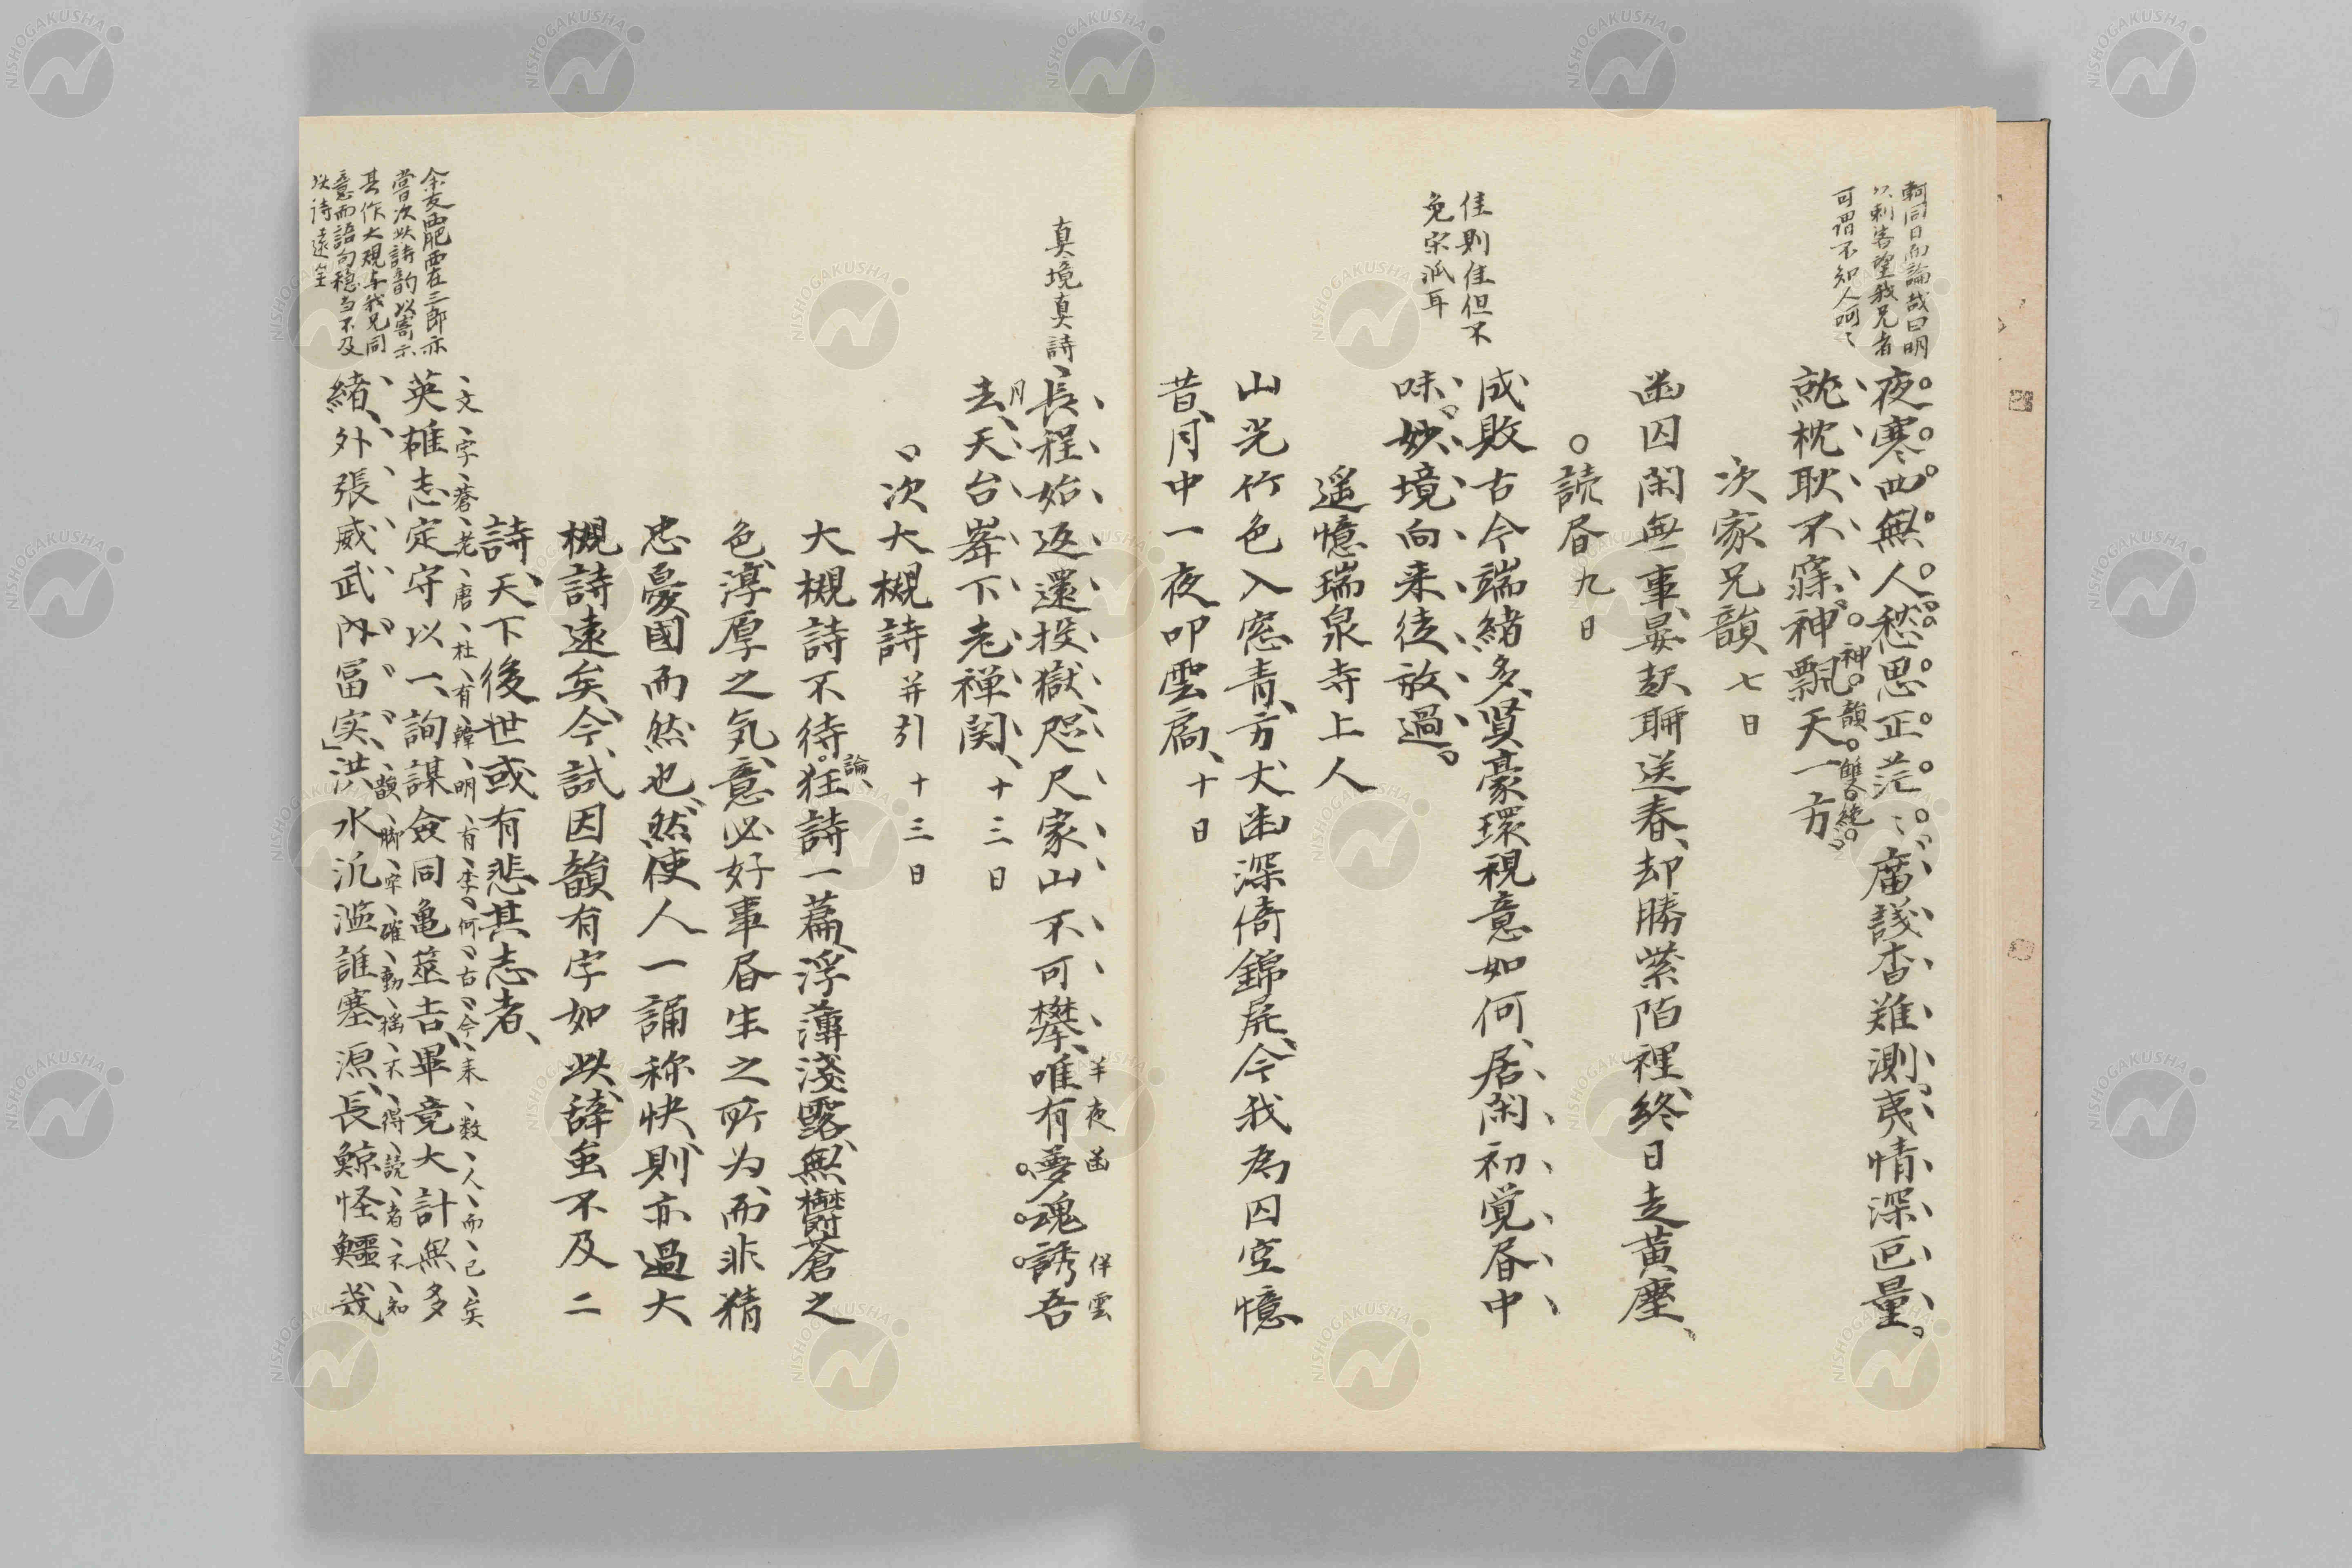 軻同日而論哉曰明
以刺客望我兄者
可謂不知人呵〻
夜寒四無人愁思正茫〻廟議杳難測夷情深叵量
就枕耿不寐神飄天一方
神韻雙絶
次家兄韻 七日
幽囚閑無事晏起聊送春却勝紫陌裡終日走黄塵
読昏 九日
佳則佳但不
免宋派耳
成敗古今端緒多賢豪環視意如何居閑初覚昏中
味妙境向来徒放過
遥憶瑞泉寺上人
山光竹色入窓青方丈幽深倚錦屏今我為囚空憶
昔月中一夜叩雲扃 十日
真境真詩
長程始返還投獄咫尺家山不可攀唯有夢魂誘吾
半夜幽
伴雲
月
去天台峯下老禅関 十三日
次大槻詩 并引 十三日
大槻詩不待狂詩一篇浮薄淺露無欝蒼之
論
色淳厚之気意必好事昏生之所為而非精
忠憂國而然也然使人一誦称快則亦過大
槻詩遠矣今試因韻有字如此辞虽不及二
詩天下後世或有悲其志者
余友西肥西在三郎亦
嘗次此詩韵以寄示
其作大槻与我兄同
意而語句穏当不及
此詩遠矣
文字蒼老唐杜有韓明有李何古今来数人而已矣
英雄志定守以一詢謀僉同亀筮吉畢竟大計無多
韻脚牢確動揺不得読者不知
緒外張威武内冨実洪水汎濫誰塞源長鯨怪鱷幾